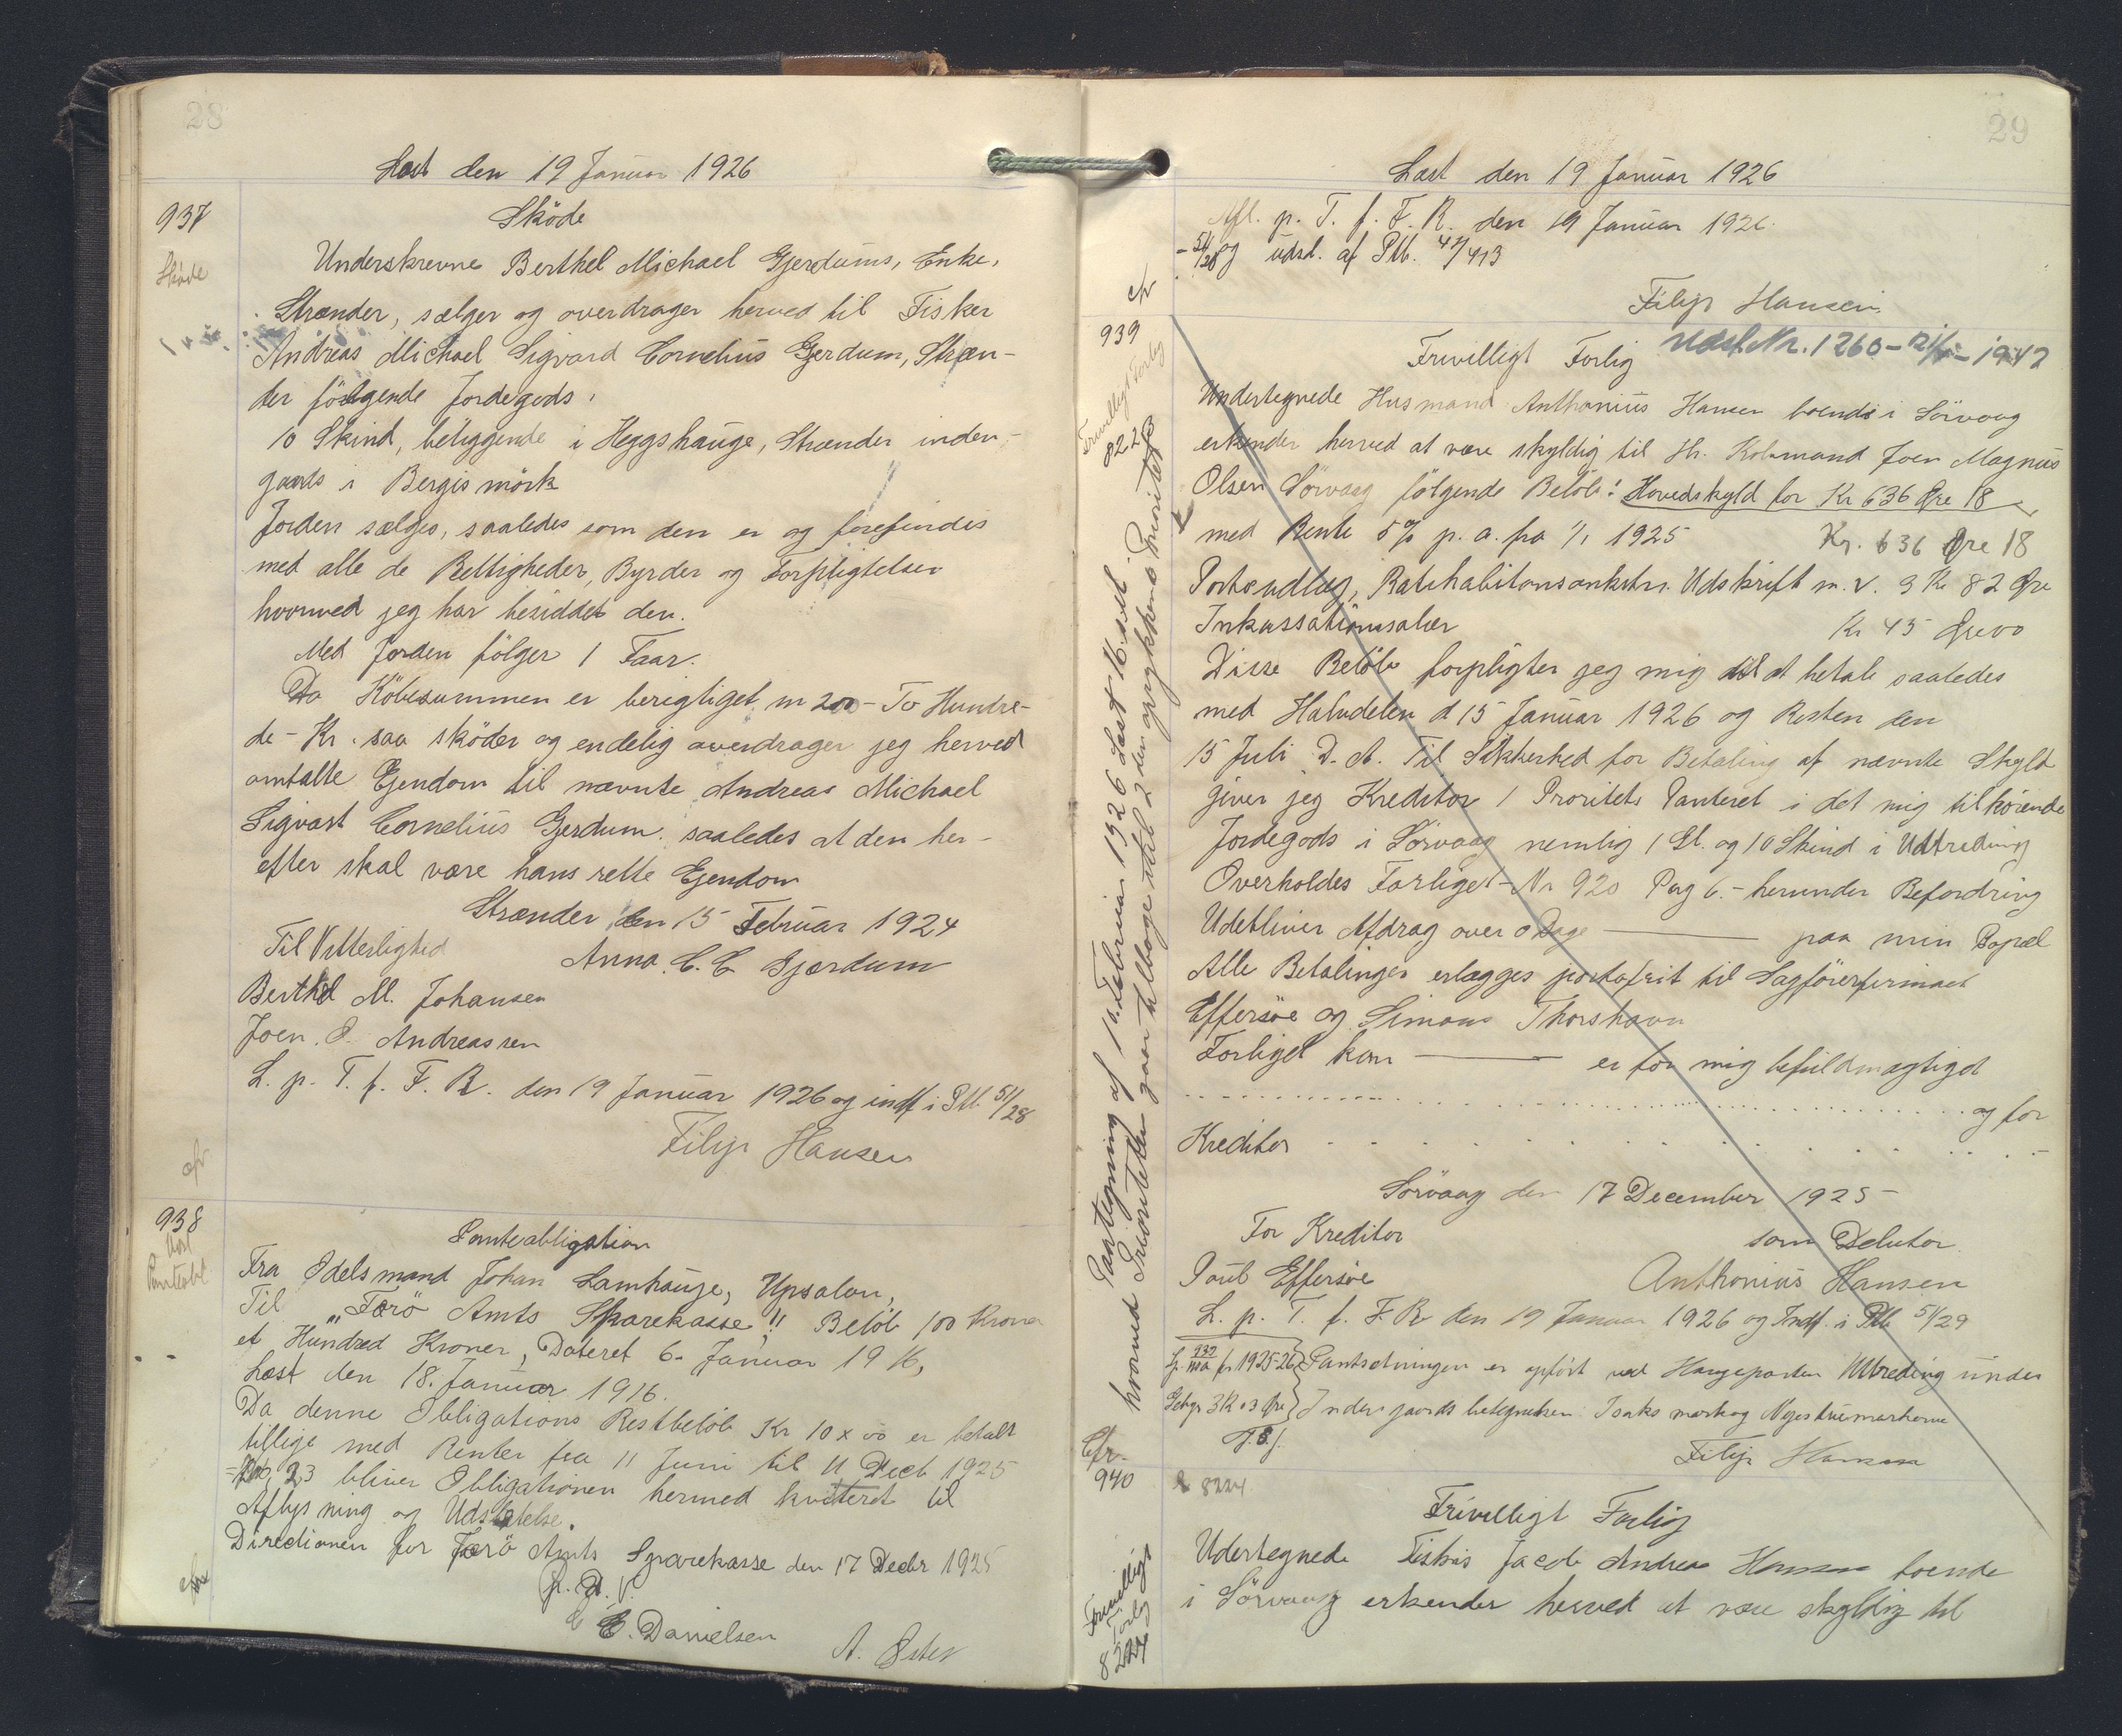 28
Læst den 19 Januar 1926
937
Skøde
Sköde
Underskrevne Berthel Michael Gjerdums, Enke,
Strænder, sælger og overdrager herved til Fisker
Andreas Michael Sigvard Cornelius Gjerdum, Stræn-
der følgende Jordegods,
10 Skind, beliggende i Heggshauge, Strænder inden-
gaards i Bergismörk
Jorden sælges, saaledes som den er og forefindes
med alle de Rettigheder, Byrder og Forpligtelser
hvormed jeg har besiddet den.
Med Jorden følger 1 Faar.
Da Köbesummen er berigtiget m 200 - To Hundre-
de - Kr. saa sköder og endelig overdrager jeg herved
omtalte Ejendom til nævnte Andreas Michael
Sigvart Cornelius Gjerdum. saaledes at den her-
efter skal være hans rette Ejendom
Strænder den 15 Februar 1924
Til Vitterlighed
Anna C. C Gjærdum
Berthel M. Johansen
Joen. J. Andreassen
L. p. T. f. F. R. den 19 Januar 1926 og indf i Ptb. 51/28
Filip Hansen
938
Panteobl
Panteobligation
Fra Odelsmand Johan Lamhauge, Upsalon,
Til "Færö Amts Sparekasse" Belöb 100 Kroner
et Hundred Kroner, Dateret 6. Januar 1916,
Læst den 18. Januar 1916.
Da denne Obligations Restbelöb Kr 10 x 00 er betalt
tillige med Renter fra 11 Juni til 11 Decb 1925
23 bliver Obligationen hermed kviteret til
Aflysning og Udslettelse.
Directionen for Færö Amts Sparekasse den 17 Decbr 1925
p. D. V.
C. Danielsen
A. Öster
29
Læst den 19 Januar 1926
Afl. p. T. f. F. R. den 19 Januar 1926.
- 51/28 og udsl. af Ptb. 47/413
Filip Hansen
939
Frivilligt Forlig
822
Udsl. Nr. 1260 - 1942
Frivilligt Forlig
Undertegnede Husmand Anthonius Hansen boende i Sörvaag
erkender herved at være skyldig til Hr. Købmand Joen Magnus
Olsen Sörvaag følgende Belöb: Hovedskyld for Kr 636 Øre 18
med Rente 5% p. a. fra 1/1 1925 Kr. 636 Øre 18
Portoudlæg, Udskrift m. v. 9 Kr 82 Øre
Inkassationssalær Kr 45 Øre 00
Disse Belöb forpligter jeg mig til at betale saaledes
med Halvdelen d 15 Januar 1926 og Resten den
15 Juli D. A. Til Sikkerhed for Betaling af nævnte Skyld
giver jeg Kreditor 1 Prioritets Panteret i det mig tilhörende
Jordegods i Sörvaag nemlig 1 Gl. og 10 Skind i Udtreding
Overholdes Forliget - Nr 920 Pag 6. - herunder Befordring
Udebliver Afdrag over 8 Dage — paa min Bopæl
Alle Betalinger erlægges portofrit til Sagförerfirmaet
Effersöe og Simons Thorshavn
Forliget kan — er for mig befuldmægtiget
og for
Kreditor
Sörvaag den 17 December 1925 -
For Kreditor som Debitor
Poul Effersöe Anthonius Hansen
L. p. T. f. F. R den 19 Januar 1926 og Indf. i Ptb 51/29
937 fr 1925-26 Pantsætningen er opført ved Haugeparten Utreding under
Gebyr 3 K 03 Øre Indengaards betegnelsen Isaks mark og
Filip Hansen
Paategning af 10. Februar 1926 Læst 16. sst.
hvorved Prioriteten gaar tilbage til 2den oprykkende Prioritet
940
8224
Frivilligt Forlig
8224
Frivilligt Forlig
Udertegnede Fisker Jacob Andreas Hansen boende
i Sörvaag erkender herved at være skyldig til